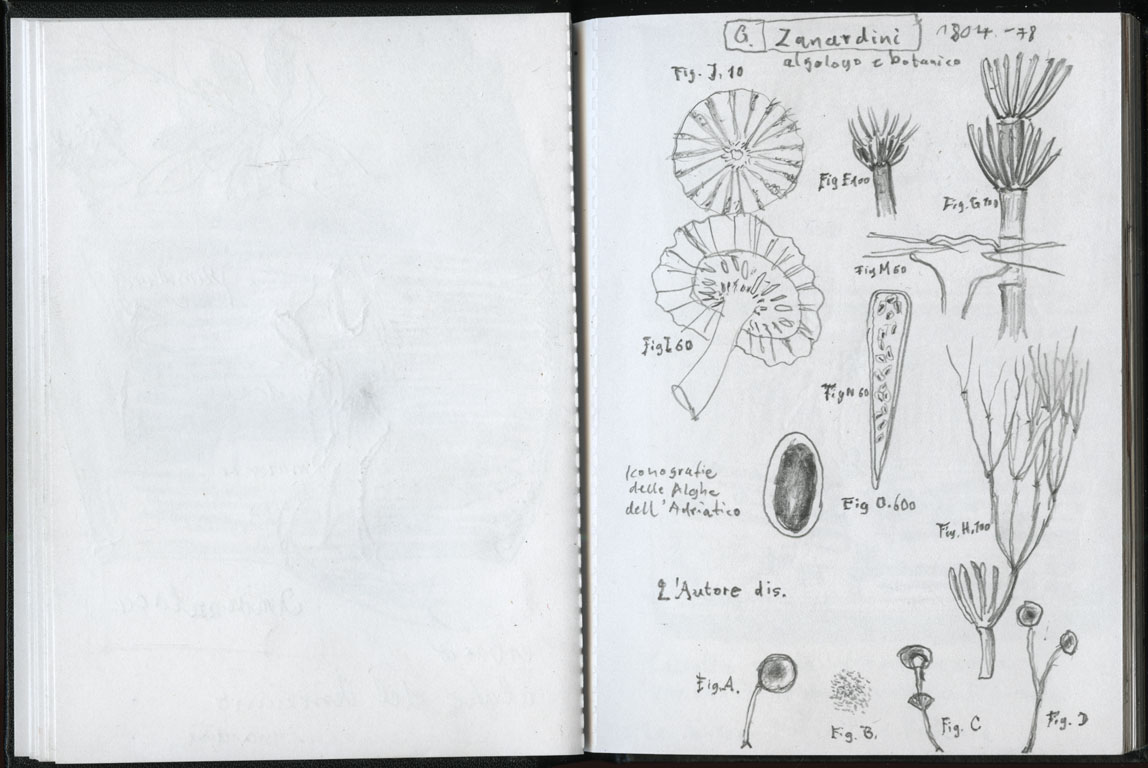 G. Zanardini 1804-78
algologo e botanico
Fig. J. 10
Fig E 100
Fig. G 100
Fig M 60
Fig L 60
Fig N 60
Iconografie
delle Alghe
dell'Adriatico
Fig O. 600
Fig. H. 100
L'Autore dis.
Fig. A.
Fig. B.
Fig. C
Fig. D